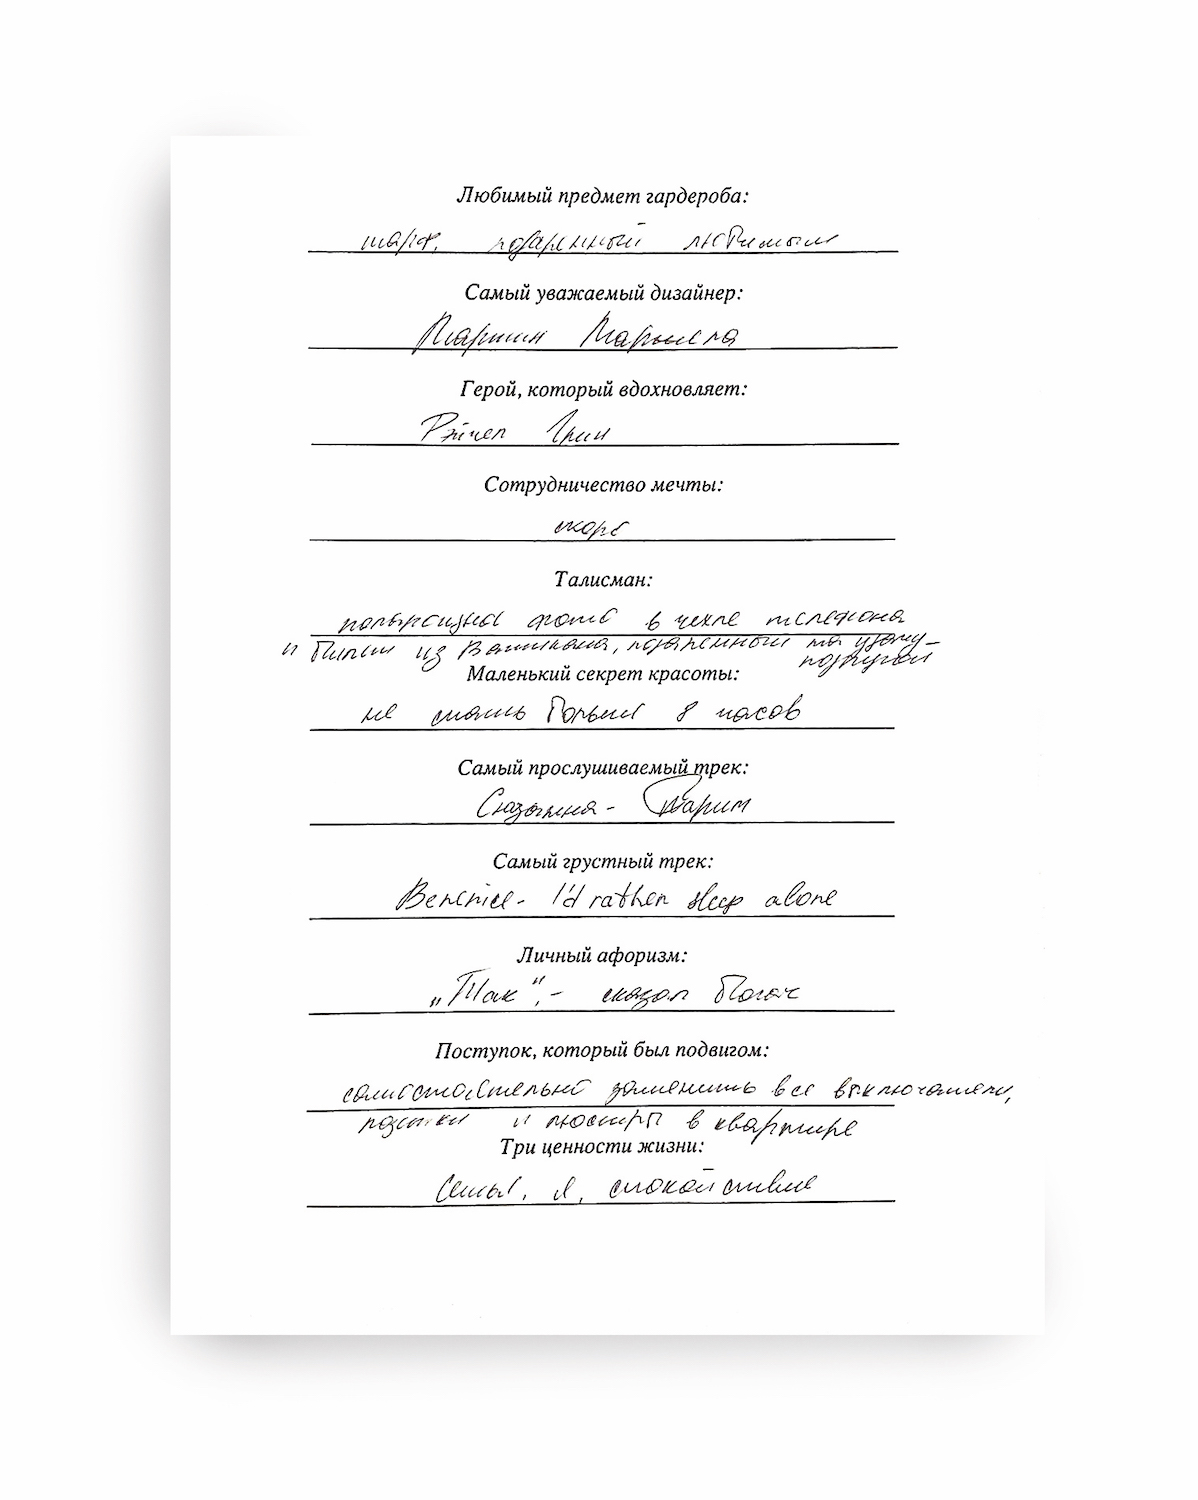 Любимый предмет гардероба:
шарф, подаренный любимым
Самый уважаемый дизайнер:
Мартин Марджела
Герой, который вдохновляет:
Рэйчел Грин
Сотрудничество мечты:
скоро
Талисман:
полароидное фото в чехле телефона
и билет из Ватикана, подаренный на удачу
подругой
Маленький секрет красоты:
не спать больше 8 часов
Самый прослушиваемый трек:
Сюзанна - Дарит
Самый грустный трек:
Berenice - I'd rather sleep alone
Личный афоризм:
„Так", - сказал богач
Поступок, который был подвигом:
самостоятельно заменить все выключатели,
розетки и люстры в квартире
Три ценности жизни:
семья, я, спокойствие